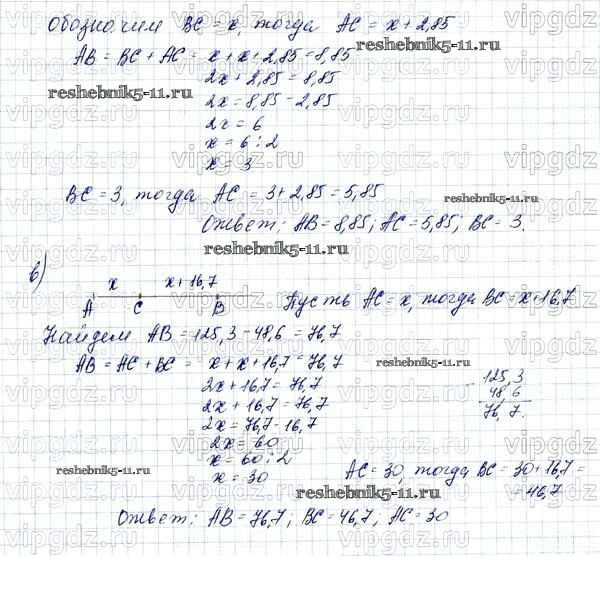 Обозначим BC = x, тогда AC = x + 2,85
AB = BC + AC = x + x + 2,85 = 8,85
2x + 2,85 = 8,85
reshebnik5-11.ru
reshebnik5-11.ru
2x = 8,85 - 2,85
2x = 6
x = 6 : 2
x = 3
BC = 3, тогда AC = 3 + 2,85 = 5,85
reshebnik5-11.ru
Ответ: AB = 8,85; AC = 5,85; BC = 3.
reshebnik5-11.ru
в)
x x + 16,7
A C B Пусть AC = x, тогда BC = x + 16,7
Найдем AB = 125,3 - 48,6 = 76,7
AB = AC + BC = x + x + 16,7 = 76,7
reshebnik5-11.ru
2x + 16,7 = 76,7
- 125,3
48,6
76,7.
2x + 16,7 = 76,7
2x = 76,7 - 16,7
2x = 60
x = 60 : 2
x = 30
reshebnik5-11.ru
AC = 30, тогда BC = 30 + 16,7 =
= 46,7
reshebnik5-11.ru
Ответ: AB = 76,7; BC = 46,7; AC = 30
vipgdz.ru